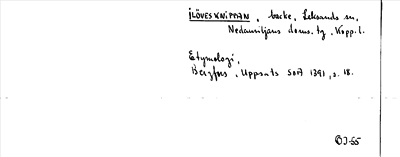 ILÖVESKNIPPAN, backe, Leksands sn,
Nedansiljans doms. tg, Kopp. l.
Etymologi,
Bergfors, Uppsats SOÅ 1391, s. 18.
BJ-55